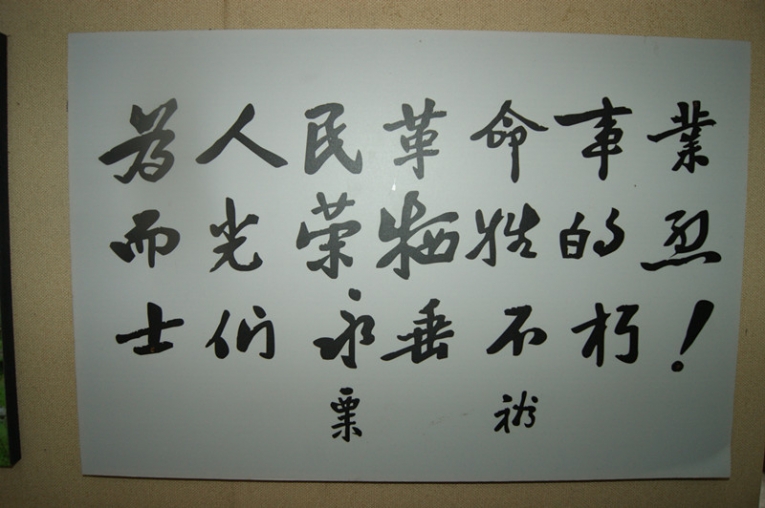 为人民革命事業
而光荣牺牲的烈
士们永垂不朽！
粟裕